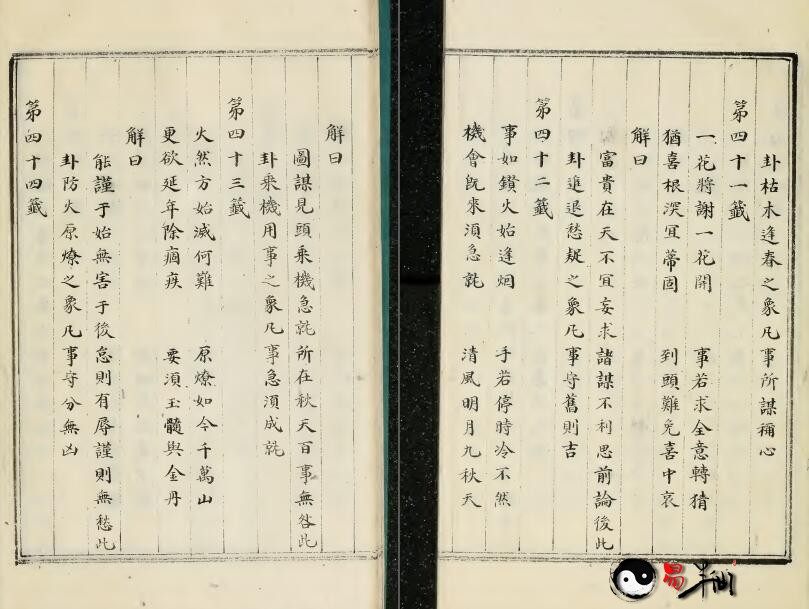 卦枯木逢春之象凡事所謀稱心
第四十一籤
一花將謝一花開　事若求全意轉猜
猶喜根深冝蒂固　到頭難免喜中哀
解曰
富貴在天不冝妄求諸謀不利思前論後此
卦進退愁疑之象凡事守舊則吉
第四十二籤
事如鑚火始逢烟　手若停時冷不然
機會旣來須急就　清風明月九秋天
解曰
圖謀見頭乘機急就所在秋天百事無咎此
卦乘機用事之象凡事急須成就
第四十三籤
火然方始滅何難　原燎如今千萬山
更欲延年除痼疾　要須玉髓與金丹
解曰
能謹于始無害于後怠則有辱謹則無愁此
卦防火原燎之象凡事守分無凶
第四十四籤
易半仙